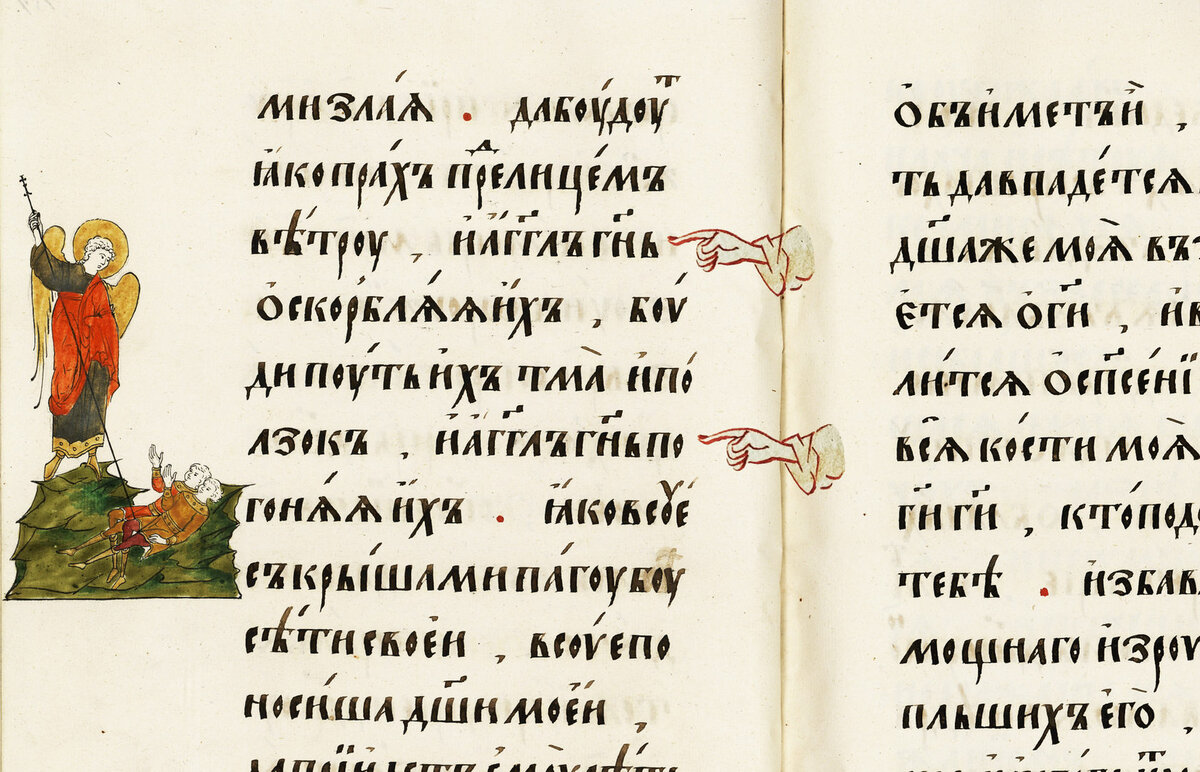 ми злаѧ . да боудоуⷮ
ꙗко прахъ преⷣ лицемъ
вѣтроу , и аг҃глъ гн҃ь
оскорблѧѧ ихъ , боу
ди поуть ихъ тма и по
лзокъ , и аг҃глъ гн҃ь по
гонѧѧ ихъ . ꙗко всоуе
съкрыша ми пагоубоу
сѣти своеи , всоуе по
носиша дш҃и моеи ,
объиметъ и ,
ть да впадетсѧ
дш҃а же моѧ въ
етсѧ о гн҃ и , и в
литсѧ о сп҃сенїи
всѧ кости моѧ
гн҃и гн҃и , кто под
тебѣ . избав
мощнаго из роу
пльших его ,